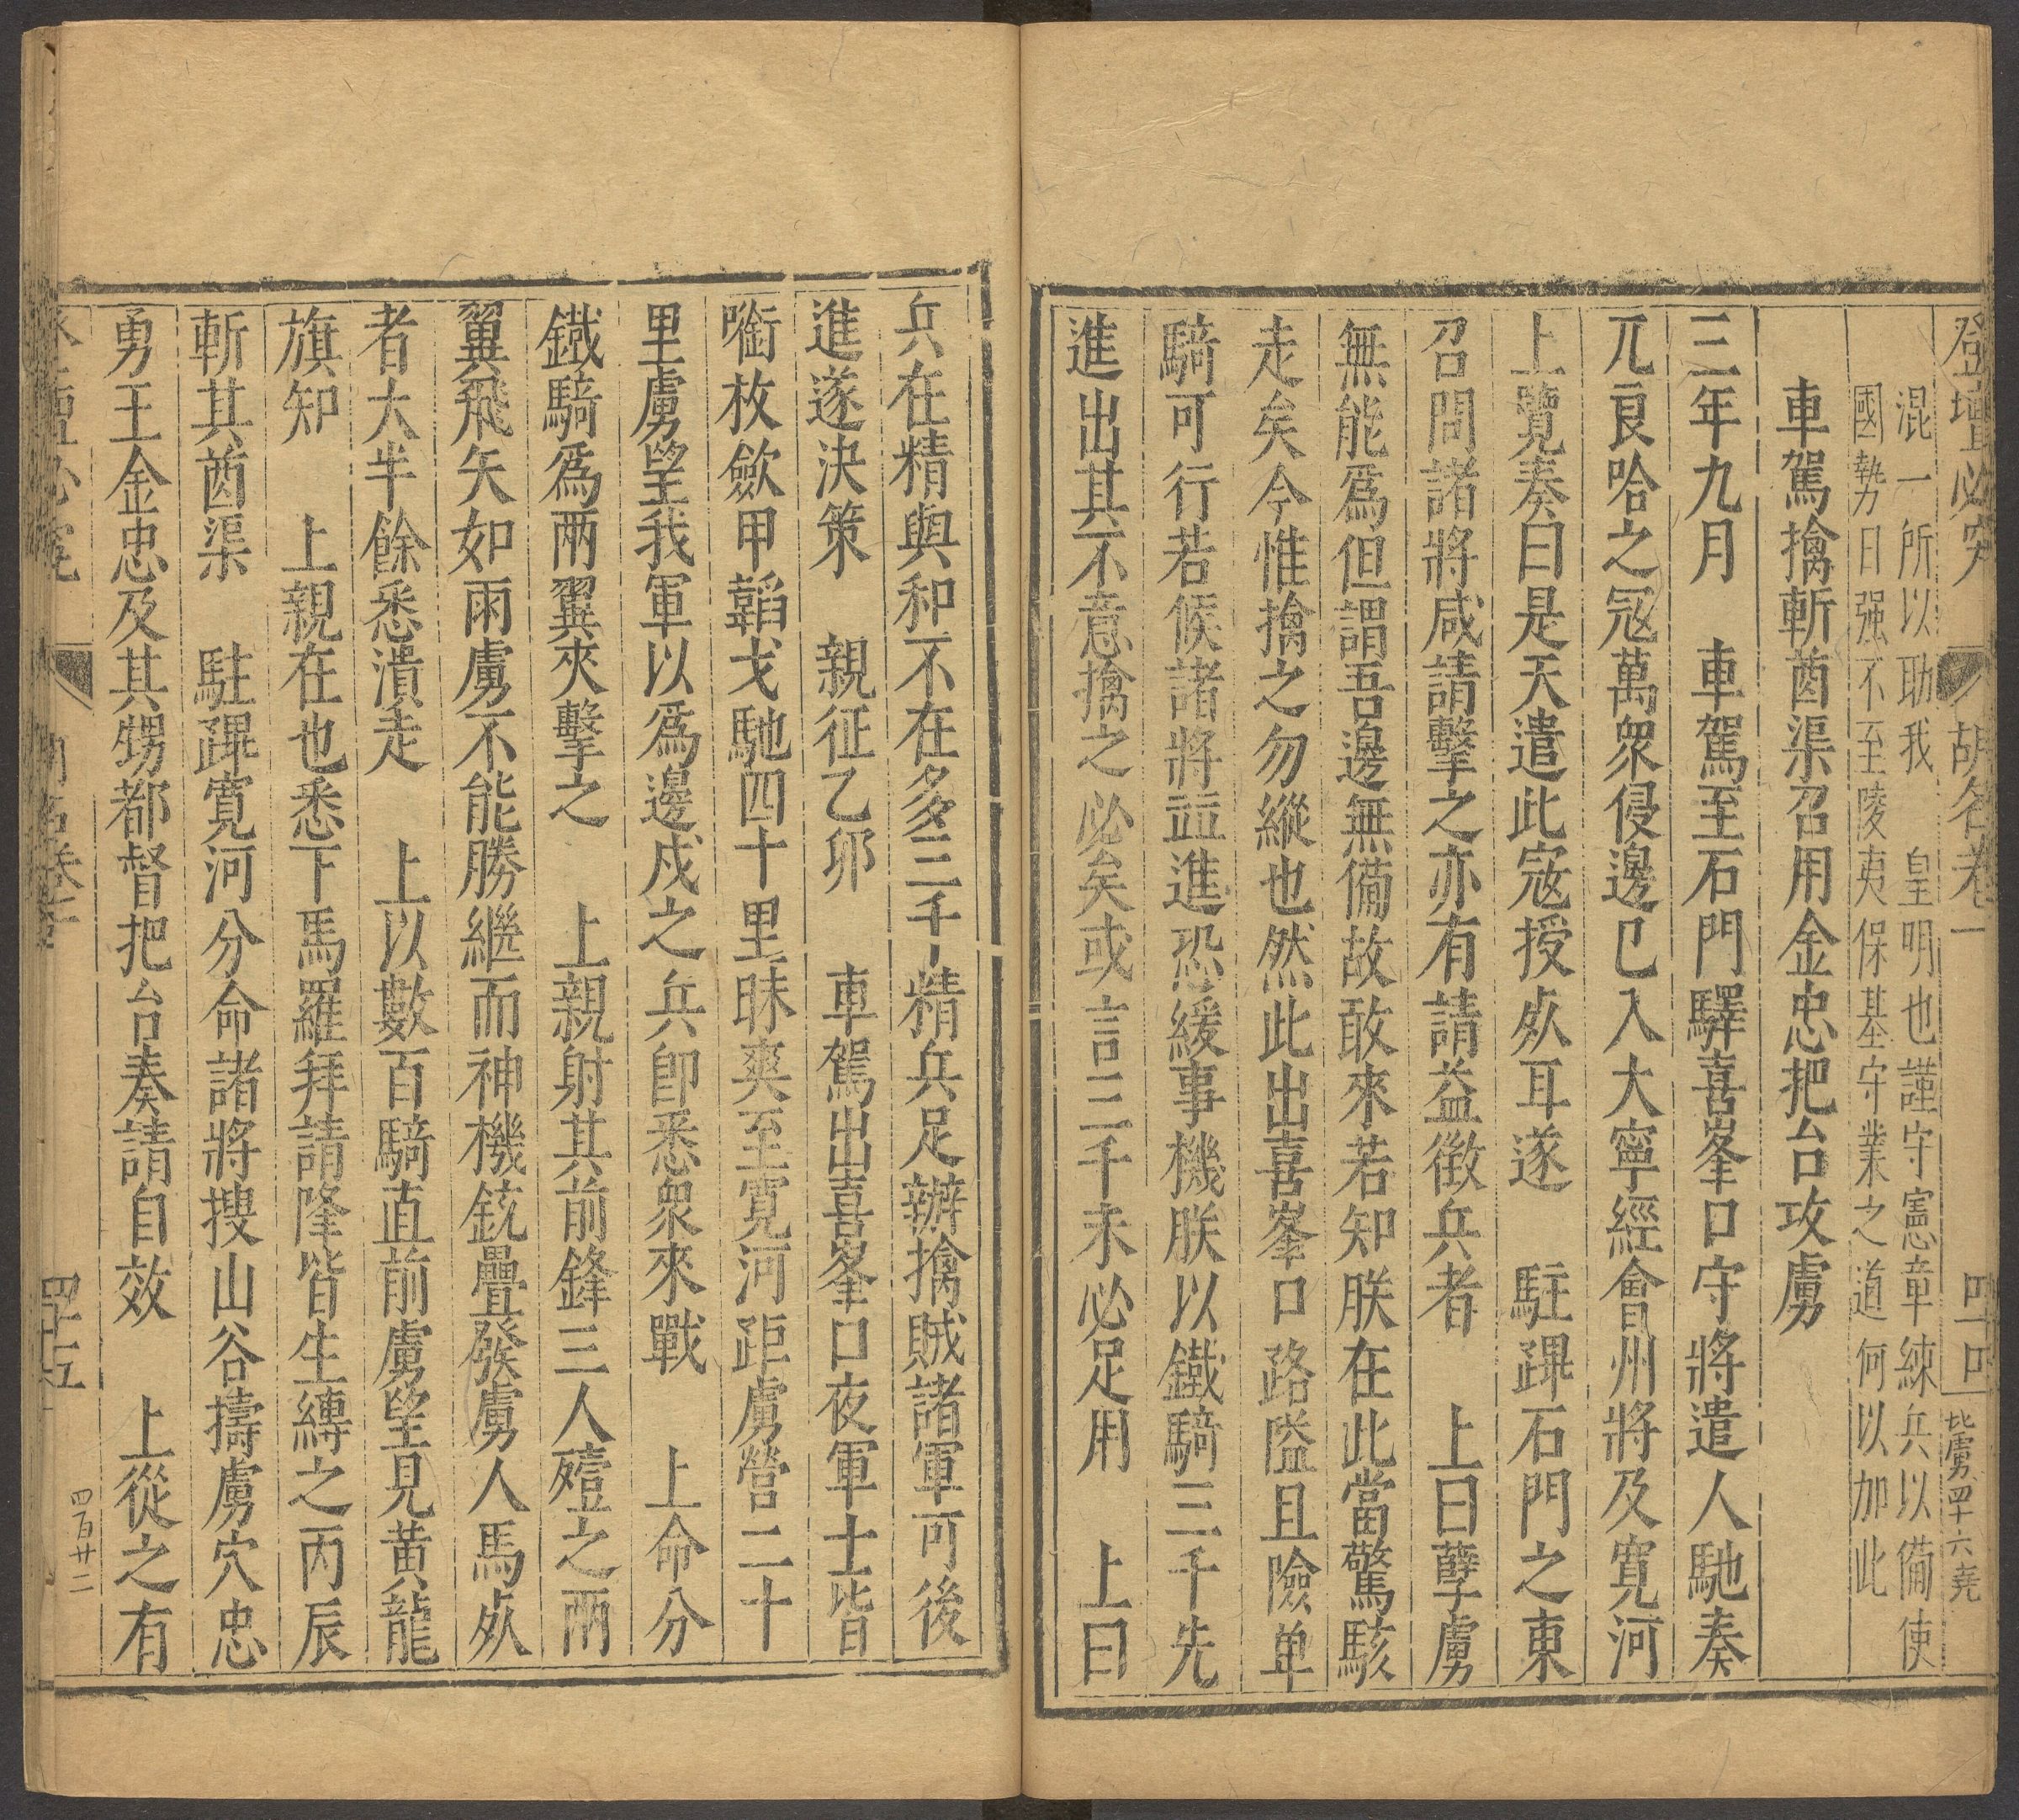 登壇必究 胡名卷一 四十四 北虜四十六堯
混一所以助我 皇明也謹守憲章練兵以備使
國勢日强不至陵夷保基守業之道何以加此
車駕擒斬酋渠召用金忠把台攻虜
三年九月 車駕至石門驛喜峯口守將遣人馳奏
兀良哈之冦萬衆侵邊已入大寧經會州將及寛河
上覽奏曰是天遣此寇授死耳遂 駐蹕石門之東
召問諸將咸請擊之亦有請益徵兵者 上曰孽虜
無能爲但謂吾邊無備故敢來若知朕在此當驚駭
走矣今惟擒之勿縱也然此出喜峯口路隘且險单
騎可行若候諸將並進恐緩事機朕以鐵騎三千先
進出其不意擒之必矣或言三千未必足用 上曰
兵在精與和不在多三千精兵足辦擒賊諸軍可後
進遂決策 親征乙卯 車駕出喜峯口夜軍士皆
啣枚歛甲韜戈馳四十里昧爽至寛河距虜營二十
里虜望我軍以爲邊戍之兵卽悉衆來戰 上命分
鐵騎爲兩翼夾擊之 上親射其前鋒三人殪之兩
翼飛矢如雨虜不能勝繼而神機銃疊發虜人馬死
者大半餘悉潰走 上以數百騎直前虜望見黄龍
旗知 上親在也悉下馬羅拜請降皆生縛之丙辰
斬其酋渠 駐蹕寛河分命諸將搜山谷擣虜穴忠
勇王金忠及其甥都督把台奏請自效 上從之有
四十五 四百廿二